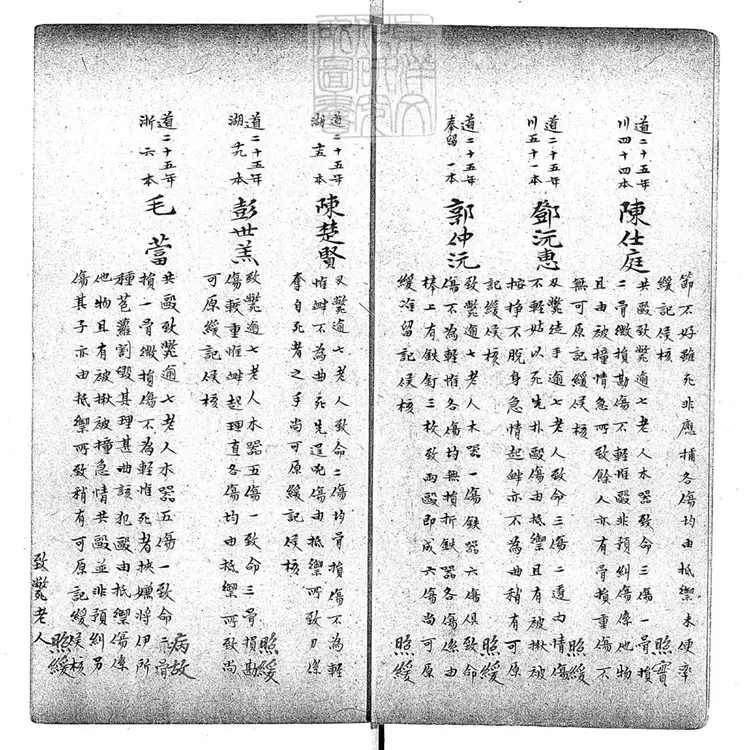 節不好雖死非應捕各傷均由抵禦未便率
緩記候核
照實
道二十五年
川四十四本
陳仕庭
共毆致斃逾七老人木器致命三傷一骨損
二骨微損勘傷不輕惟毆非預糾傷係他物
且由被撞情急所致餘人亦有骨損重傷不
無可原記緩候核
照緩
道二十五年
川五十一本
鄧沅惠
刃斃徒手逾七老人致命三傷二透內情傷
不輕姑以死先扑毆傷由抵禦且有被揪被
按掙不脫身急情起衅亦不為曲稍有可原
記緩候核
照緩
道二十五年
奉留一本
郭仲沅
致斃逾七老人木器一傷鉄器六傷俱致命
傷不為輕惟各傷均無損折鉄器各傷係由
棒上有鉄釘三枚致兩毆即成六傷尚可原
緩准留記候核
照緩
道二十五年
湖 本
陳楚賢
刃斃逾七老人致命二傷均骨損傷不為輕
惟衅不為曲死先逞兇傷由抵禦所致刃係
奪自死者之手尚可原緩記候核
道二十五年
湖 本
彭世羔
致斃逾七老人木器五傷一致命三骨損勘
傷較重惟衅起理直各傷均由抵禦所致尚
可原緩記候核
照緩
道二十五年
浙六本
毛蕾
共毆致斃逾七老人木器五傷一致命二骨
損一骨微損傷不為輕惟死者挾嫌將伊所
種芭蘿割毀其理甚曲該犯毆由抵禦傷係
他物且有被揪被撞急情共毆並非預糾另
傷其子亦由抵禦所致稍有可原記緩候核
病故
照緩
致斃老人